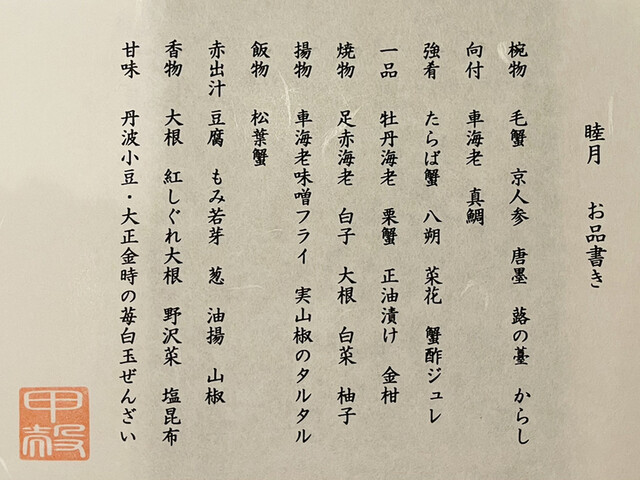 睦月　お品書き
椀物　毛蟹　京人参　唐墨　蕗の薹　からし
向付　車海老　真鯛
強肴　たらば蟹　八朔　菜花　蟹酢ジュレ
一品　牡丹海老　栗蟹　正油漬け　金柑
焼物　足赤海老　白子　大根　白菜　柚子
揚物　車海老味噌フライ　実山椒のタルタル
飯物　松葉蟹
赤出汁　豆腐　もみ若芽　葱　油揚　山椒
香物　大根　紅しぐれ大根　野沢菜　塩昆布
甘味　丹波小豆・大正金時の苺白玉ぜんざい
甲殻